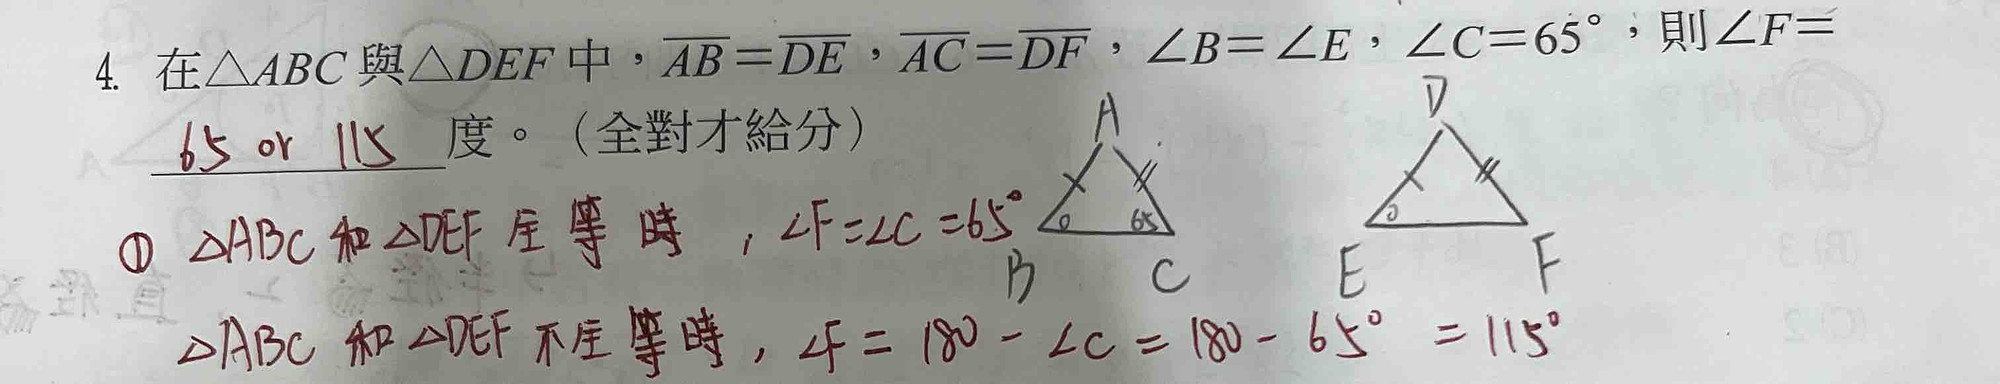 4. 在△ABC與△DEF中，AB=DE，AC=DF，∠B=∠E，∠C=65°，則∠F=
65 or 115 度。（全對才給分）
A
D
65
B
C
E
F
① △ABC 和 △DEF 全等時，∠F=∠C=65°
△ABC 和 △DEF 不全等時，∠F = 180 - ∠C = 180 - 65° = 115°